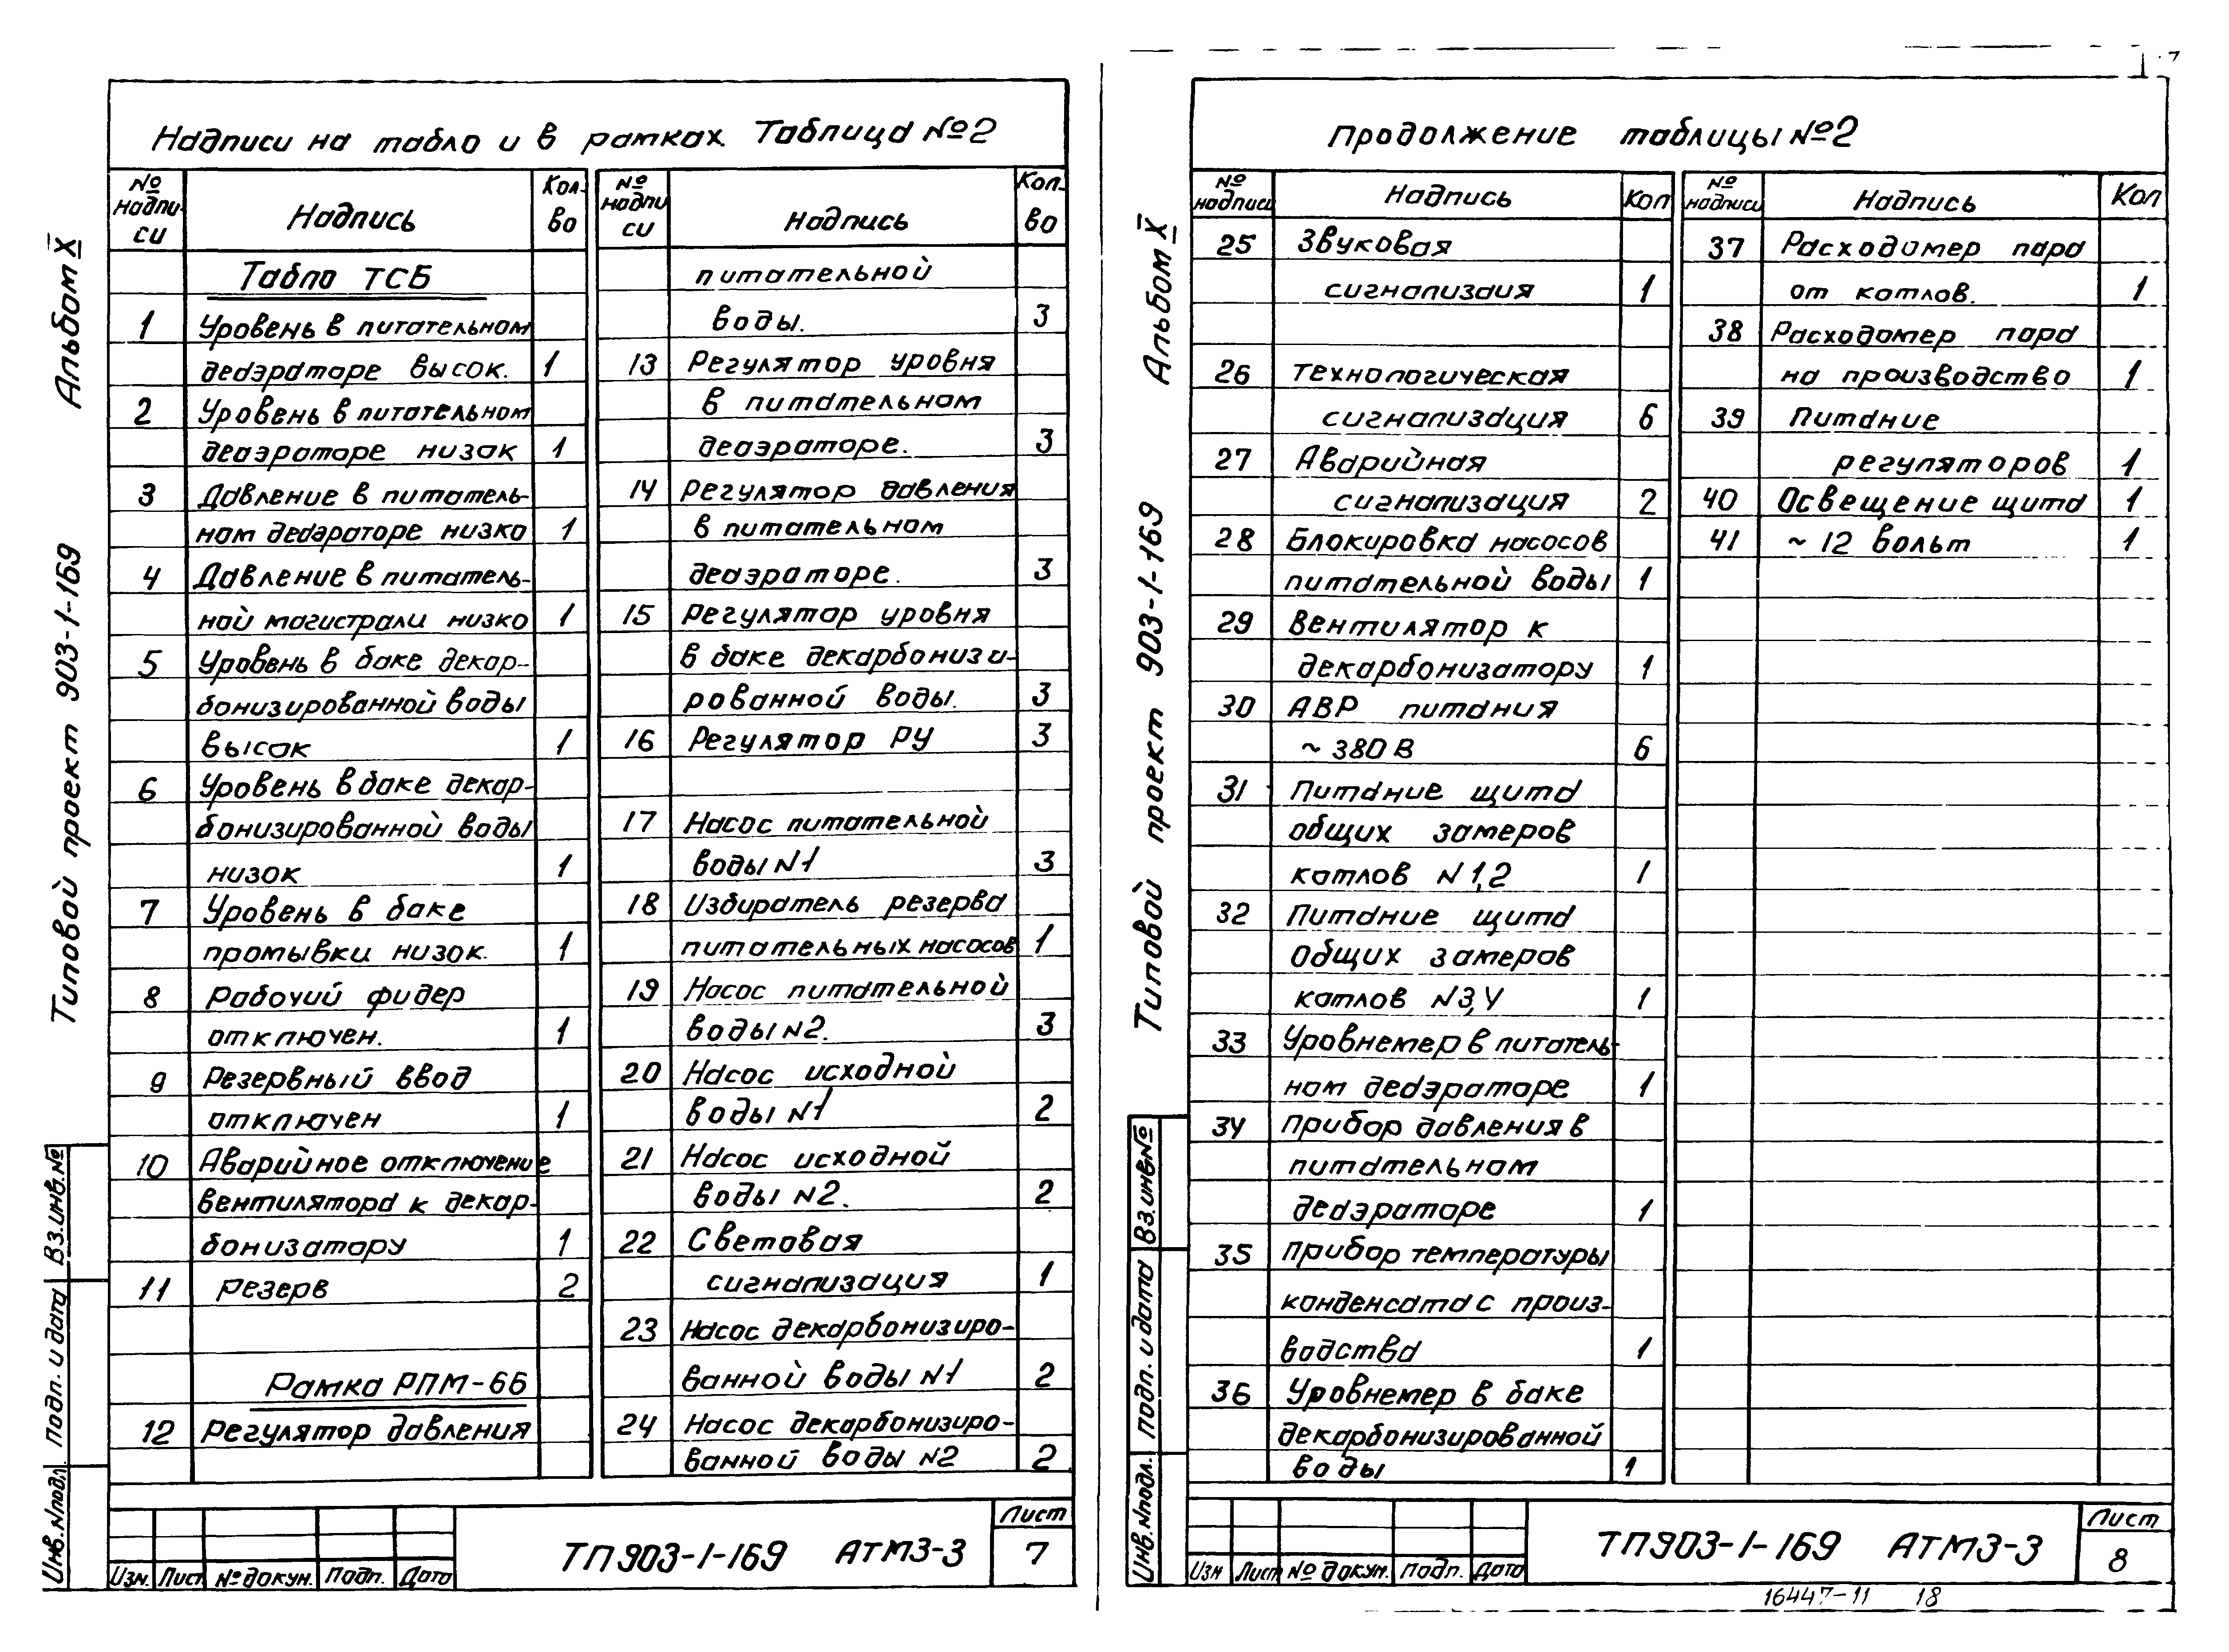 Надписи на табло и в рамках Таблица №2
№ надпи- си Надпись Кол- во
Табло ТСБ
1 Уровень в питательном
деаэраторе высок. 1
2 Уровень в питательном
деаэраторе низок 1
3 Давление в питатель-
ном деаэраторе низко 1
4 Давление в питатель-
ной магистрали низко 1
5 Уровень в баке декар-
бонизированной воды
высок 1
6 Уровень в баке декар-
бонизированной воды
низок 1
7 Уровень в баке
промывки низок. 1
8 Рабочий фидер
отключен. 1
9 Резервный ввод
отключен 1
10 Аварийное отключение
вентилятора к декар-
бонизатору 1
11 Резерв 2
Рамка РПМ-66
12 Регулятор давления
№ надпи си Надпись Кол- во
питательной
воды. 3
13 Регулятор уровня
в питательном
деаэраторе. 3
14 Регулятор давления
в питательном
деаэраторе. 3
15 Регулятор уровня
в баке декарбонизи-
рованной воды. 3
16 Регулятор РУ 3
17 Насос питательной
воды N1 3
18 Избиратель резерва
питательных насосов 1
19 Насос питательной
воды N2. 3
20 Насос исходной
воды N1 2
21 Насос исходной
воды N2. 2
22 Световая
сигнализация 1
23 Насос декарбонизиро-
ванной воды N1 2
24 Насос декарбонизиро-
ванной воды N2 2
Альбом X
Типовой проект 903-1-169
Вз.инв.№
Подп. и дата
Инв.Nподл.
Изм. Лист № докум. Подп. Дата
ТП903-1-169 АТМ3-3
Лист
7
Продолжение таблицы №2
№ надписи Надпись Кол
25 Звуковая
сигнализаия 1
26 Технологическая
сигнализация 6
27 Аварийная
сигнализация 2
28 Блокировка насосов
питательной воды 1
29 Вентилятор к
декарбонизатору 1
30 АВР питания
~ 380 В 6
31 Питание щита
общих замеров
котлов N 1,2 1
32 Питание щита
общих замеров
котлов N3,4 1
33 Уровнемер в питатель-
ном деаэраторе 1
34 Прибор давления в
питательном
деаэраторе 1
35 Прибор температуры
конденсата с произ-
водства 1
36 Уровнемер в баке
декарбонизированной
воды 1
№ надписи Надпись Кол
37 Расходомер пара
от котлов. 1
38 Расходомер пара
на производство 1
39 Питание
регуляторов 1
40 Освещение щита 1
41 ~ 12 вольт 1
Альбом X
Типовой проект 903-1-169
Вз.инв№
Подп. и дата
Инв.Nподл.
Изм Лист № докум. Подп. Дата
ТП903-1-169 АТМ3-3
Лист
8
16447-11 18